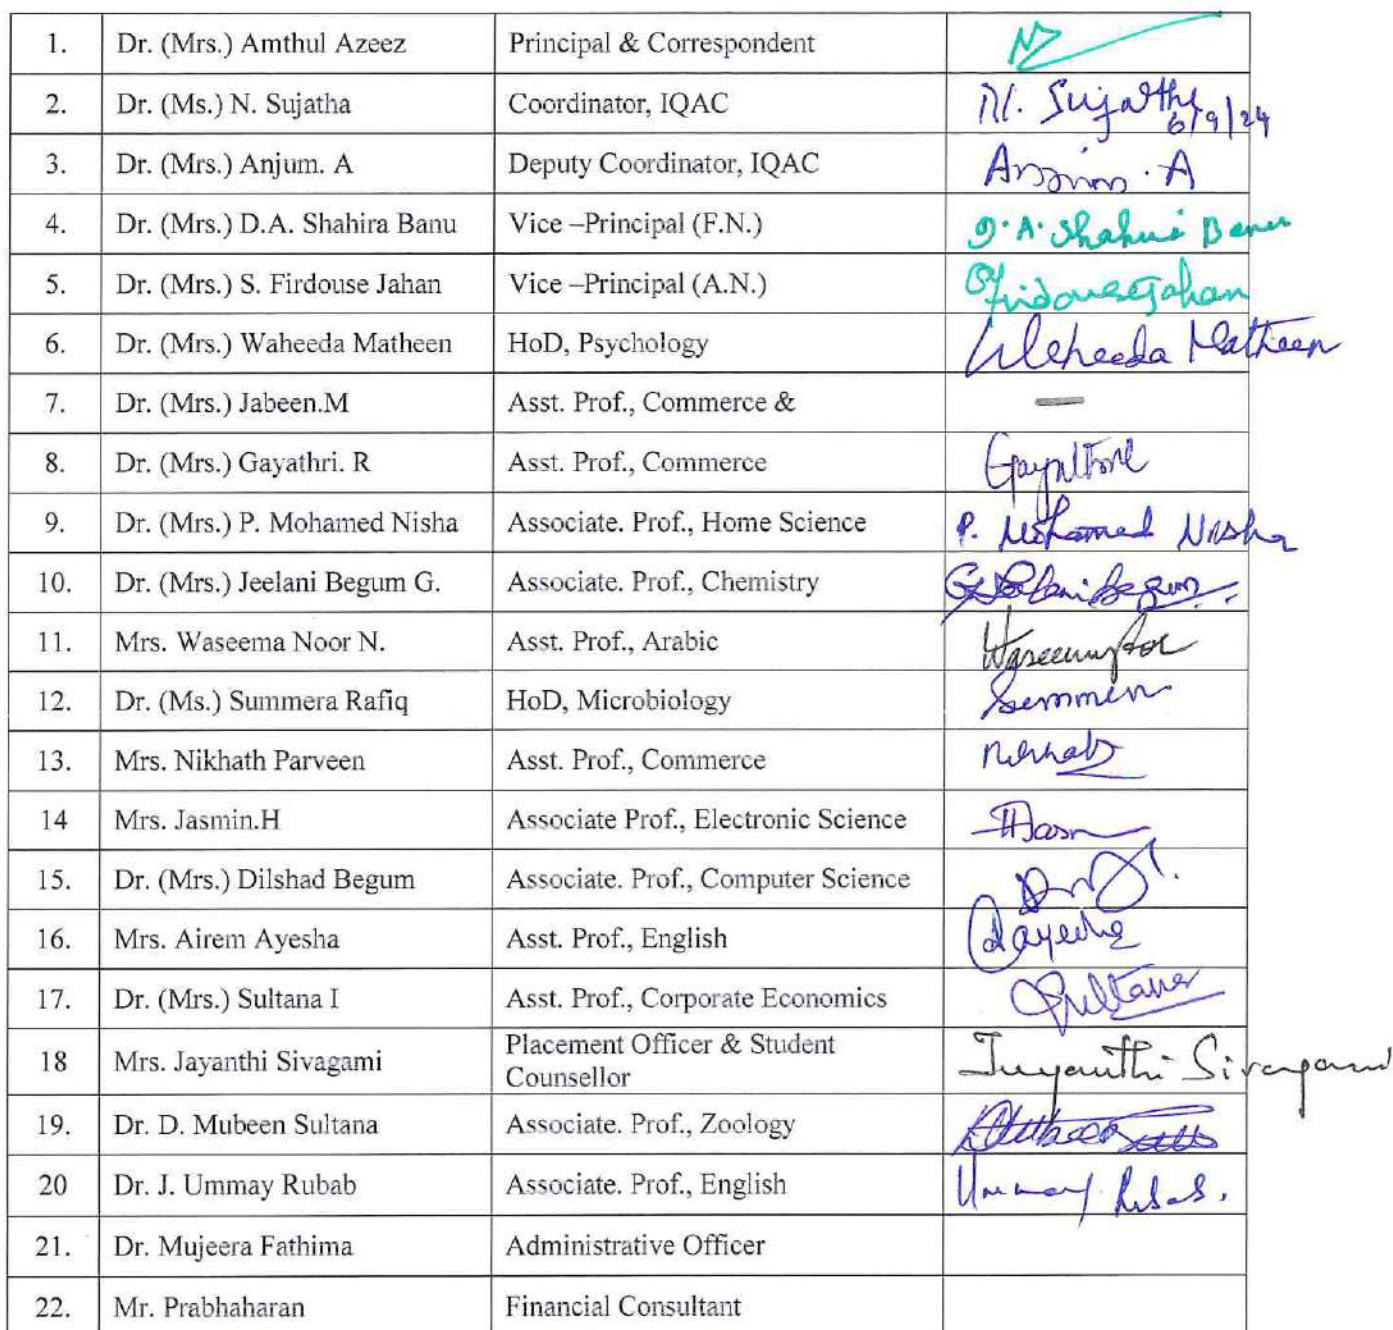 1. Dr. (Mrs.) Amthul Azeez Principal & Correspondent
2. Dr. (Ms.) N. Sujatha Coordinator, IQAC N. Sujatha
6/9/24
3. Dr. (Mrs.) Anjum. A Deputy Coordinator, IQAC Anjum. A
4. Dr. (Mrs.) D.A. Shahira Banu Vice –Principal (F.N.) D.A. Shahira Banu
5. Dr. (Mrs.) S. Firdouse Jahan Vice –Principal (A.N.) S. Firdouse Jahan
6. Dr. (Mrs.) Waheeda Matheen HoD, Psychology Waheeda Matheen
7. Dr. (Mrs.) Jabeen.M Asst. Prof., Commerce & —
8. Dr. (Mrs.) Gayathri. R Asst. Prof., Commerce Gayathri
9. Dr. (Mrs.) P. Mohamed Nisha Associate. Prof., Home Science P. Mohamed Nisha
10. Dr. (Mrs.) Jeelani Begum G. Associate. Prof., Chemistry G. Jeelani Begum
11. Mrs. Waseema Noor N. Asst. Prof., Arabic Waseema Noor
12. Dr. (Ms.) Summera Rafiq HoD, Microbiology
13. Mrs. Nikhath Parveen Asst. Prof., Commerce
14 Mrs. Jasmin.H Associate Prof., Electronic Science
15. Dr. (Mrs.) Dilshad Begum Associate. Prof., Computer Science
16. Mrs. Airem Ayesha Asst. Prof., English Ayesha
17. Dr. (Mrs.) Sultana I Asst. Prof., Corporate Economics Sultana
18 Mrs. Jayanthi Sivagami Placement Officer & Student Jayanthi Sivagami
Counsellor
19. Dr. D. Mubeen Sultana Associate. Prof., Zoology
20 Dr. J. Ummay Rubab Associate. Prof., English Ummay Rubab.
21. Dr. Mujeera Fathima Administrative Officer
22. Mr. Prabhaharan Financial Consultant